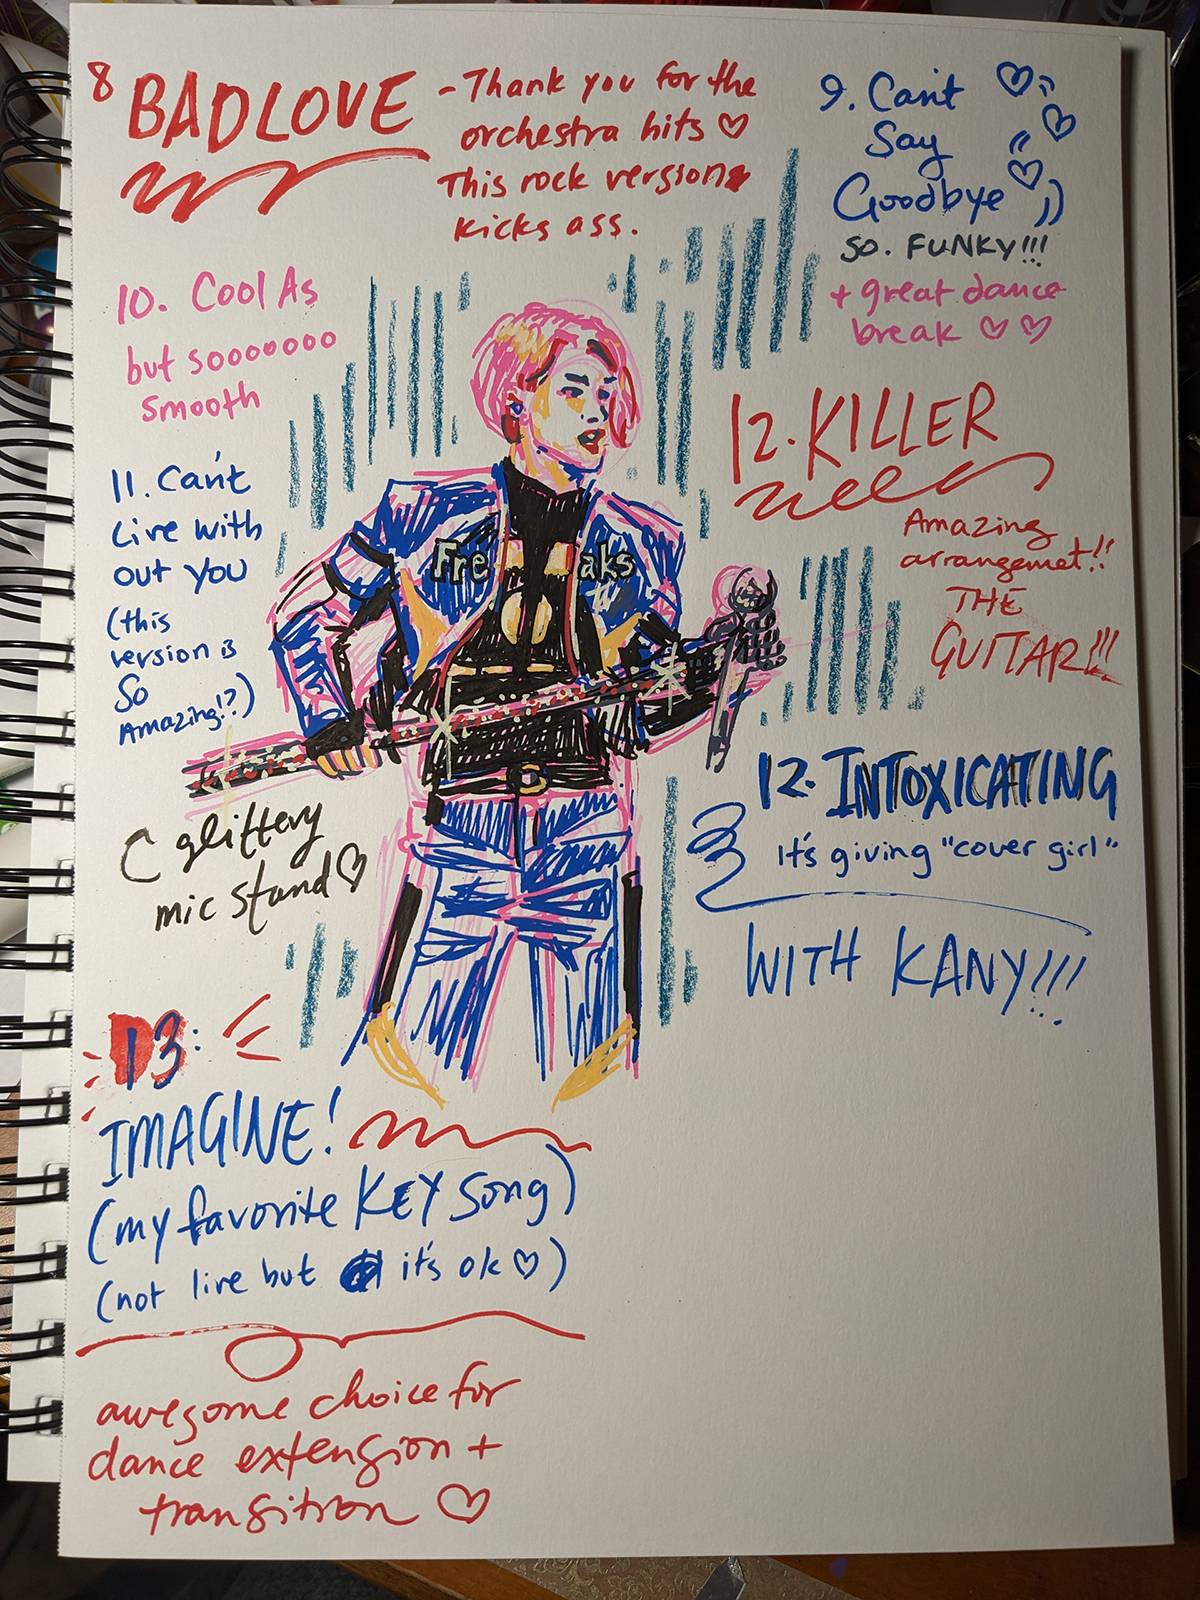 8 BADLOVE
- Thank you for the
orchestra hits ♡
This rock version
kicks ass.
9. Can't
Say
Goodbye
SO. FUNKY!!!
+ great dance
break ♡ ♡
10. Cool As
but sooooooo
smooth
11. Can't
Live with
out you
(this
version is
So
Amazing!?)
12. KILLER
Amazing
arrangemet!!
THE
GUITAR!!!
Fre aks
glittery
mic stand ♡
12. INTOXICATING
It's giving "cover girl"
WITH KANY!!!
13:
IMAGINE!
(my favorite KEY song)
(not live but it's ok ♡)
awesome choice for
dance extension +
transition ♡